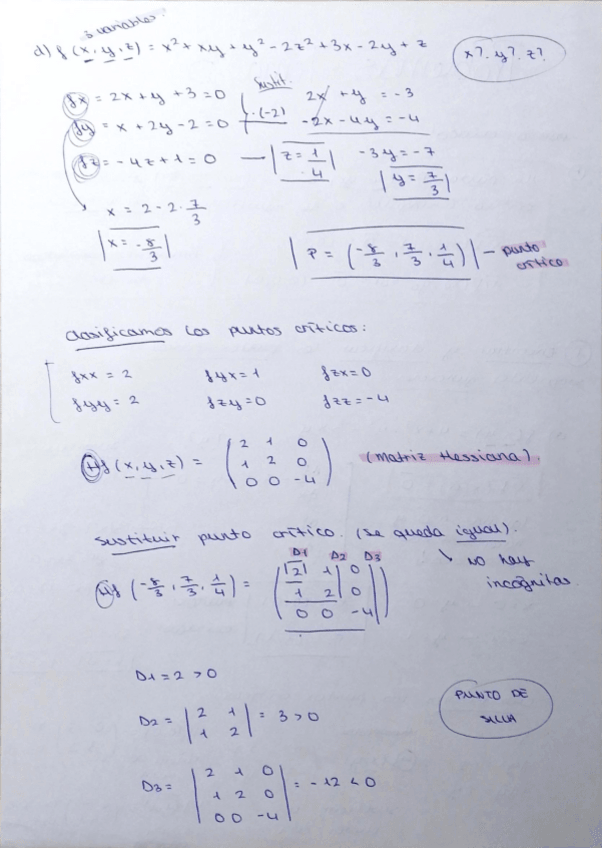 3 variables
d) f(x, y, z) = x² + xy + y² - 2z² + 3x - 2y + z
x? y? z?
Sustit.
fx = 2x + y + 3 = 0
2x + y = -3
fy = x + 2y - 2 = 0 | · (-2)
-2x - 4y = -4
fz = -4z + 1 = 0 — z = 1/4
-3y = -7
y = 7/3
x = 2 - 2 · 7/3
x = -8/3
P = (-8/3, 7/3, 1/4) — punto crítico
clasificamos los puntos críticos:
fxx = 2 fyx = 1 fzx = 0
fyy = 2 fzy = 0 fzz = -4
Hf (x, y, z) = (2 1 0
1 2 0
0 0 -4) (matriz Hessiana).
sustituir punto crítico. (se queda igual).
↘ no hay incógnitas
D1 D2 D3
Hf (-8/3, 7/3, 1/4) = (2 1 0
1 2 0
0 0 -4)
D1 = 2 > 0
D2 = |2 1
1 2| = 3 > 0
PUNTO DE SILLA
D3 = |2 1 0
1 2 0
0 0 -4| = -12 < 0